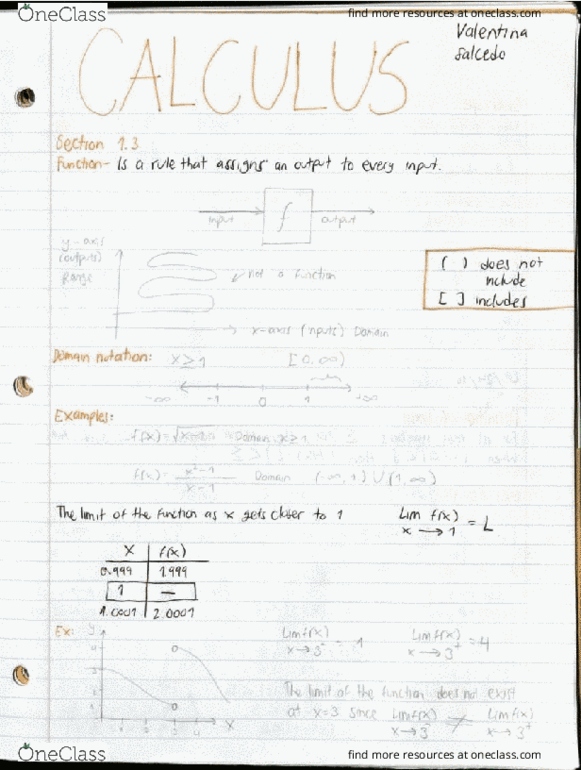 OneClass
find more resources at oneclass.com
Valentina
Salcedo
CALCULUS
Section 1.3
Function- Is a rule that assigns an output to every input.
input
f
output
y-axis
(outputs)
Range
not a function
( ) does not
include
[ ] includes
x-axis (inputs) Domain
Domain notation: x ≥ 1 [0, ∞)
-∞ -1 0 1 +∞
Examples:
f(x)= Domain x≥1
f(x)= x²-1 / x-1 Domain (-∞, 1) ∪ (1, ∞)
The limit of the function as x gets closer to 1
Lim f(x) = L
x → 1
X f(x)
0.999 1.999
1 —
1.0001 2.0001
Ex:
y
x
Lim f(x) = 1
x → 3⁻
Lim f(x) = 4
x → 3⁺
The limit of the function does not exist
at x=3 since Lim f(x) ≠ Lim f(x)
x → 3⁻ x → 3⁺
OneClass
find more resources at oneclass.com